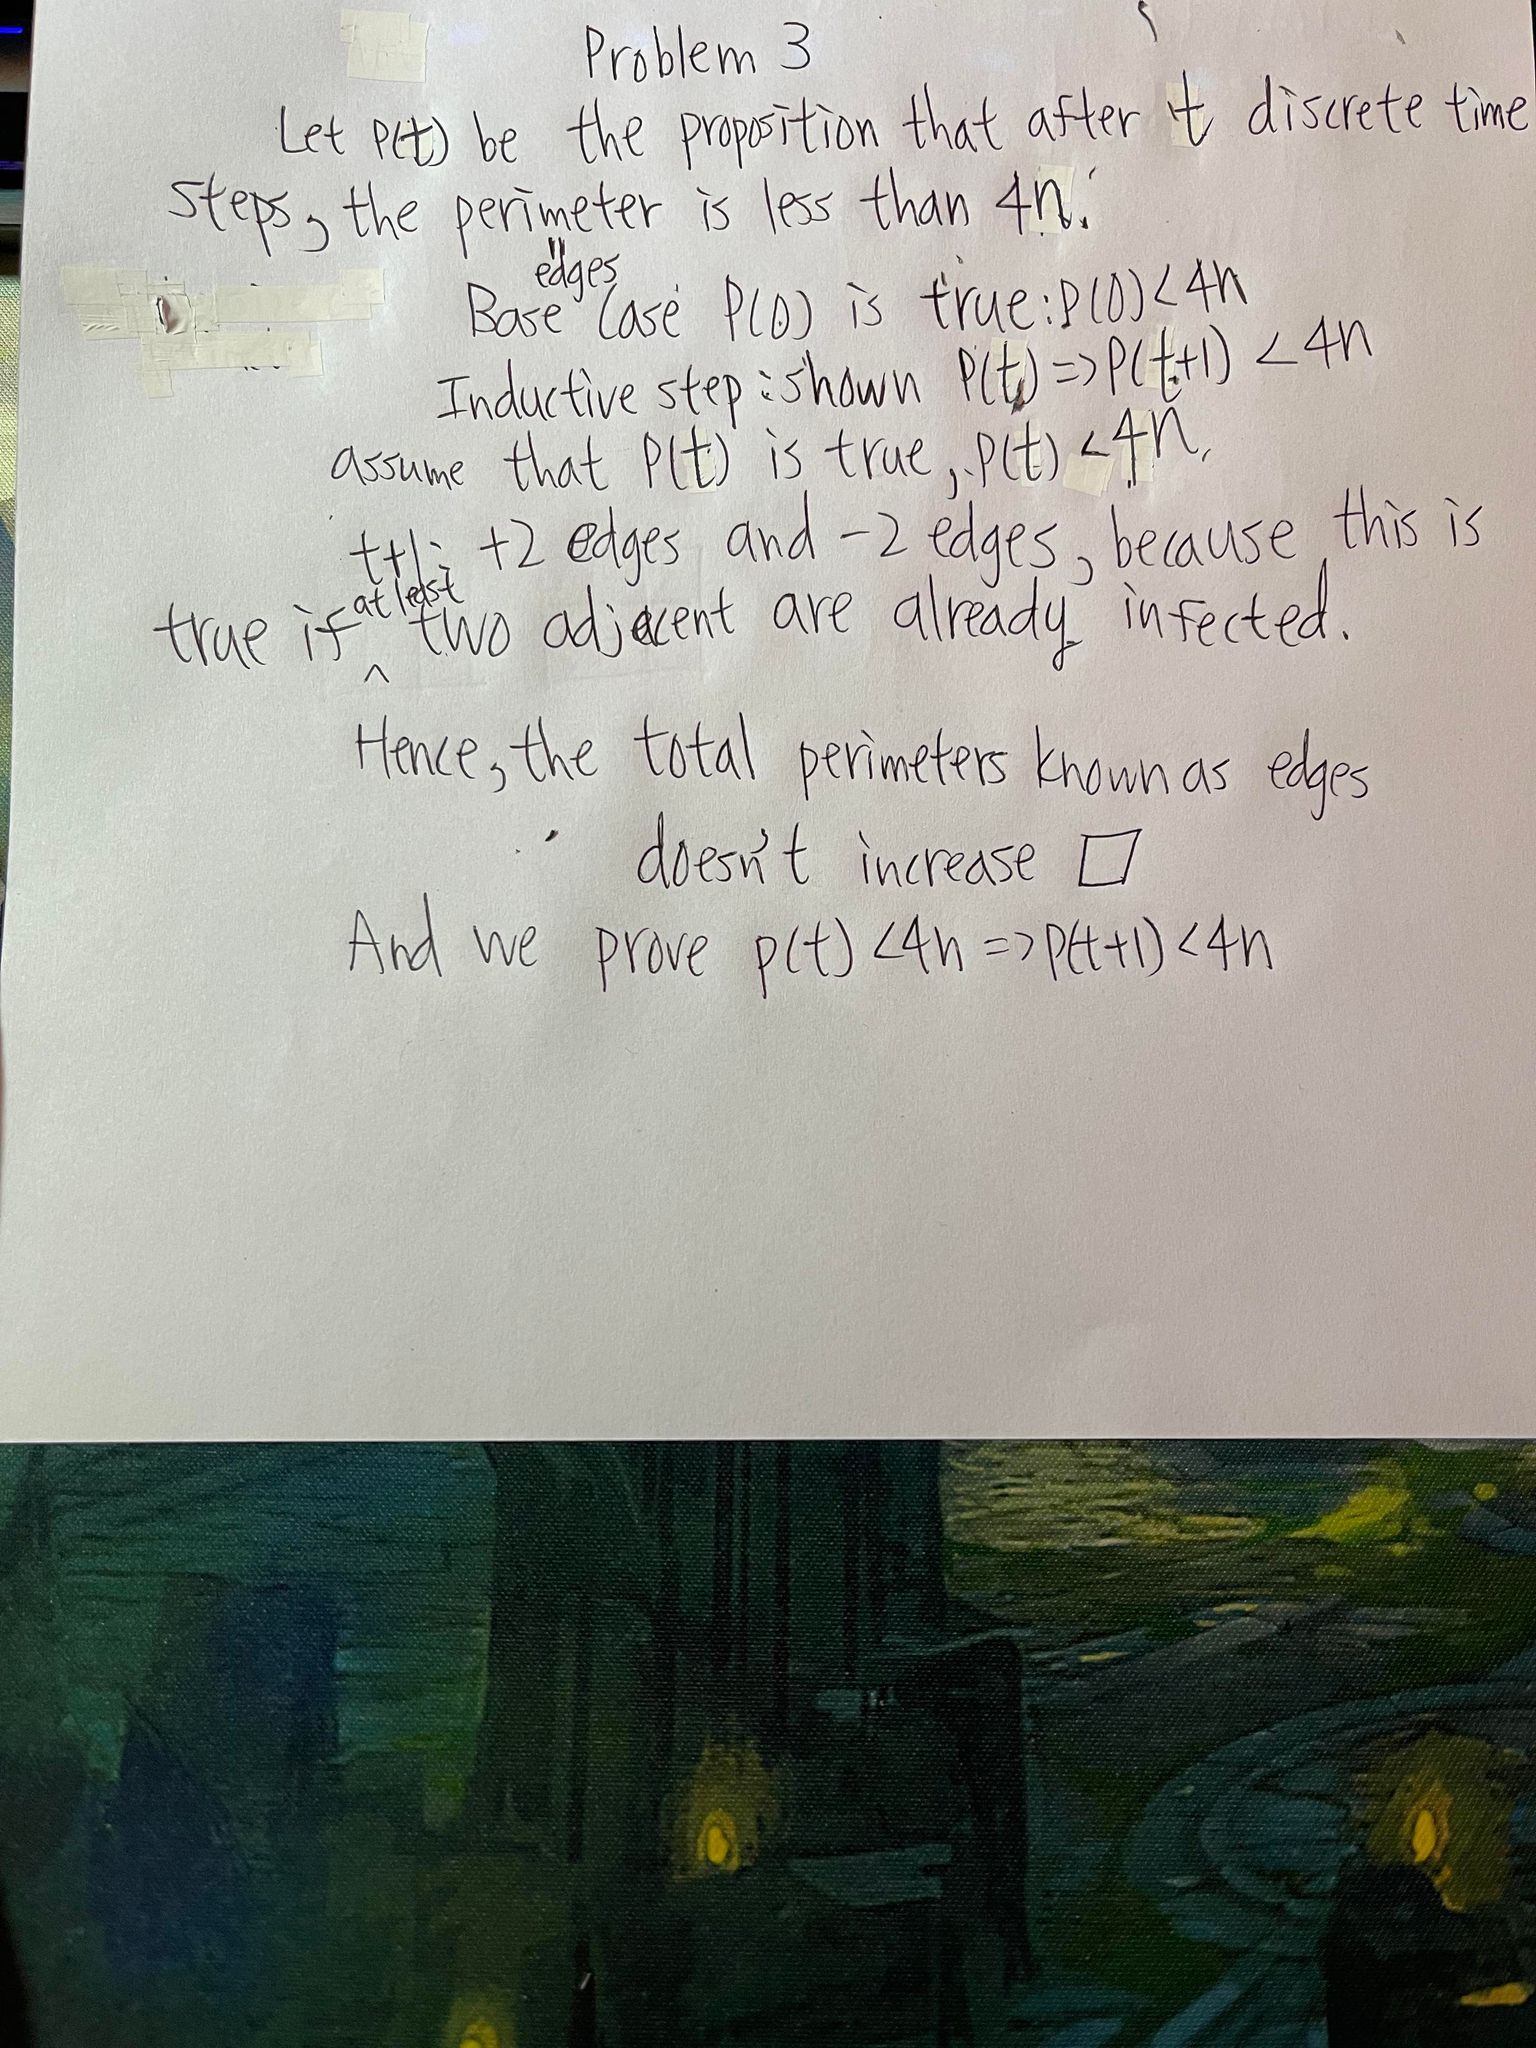 Problem 3
Let P(t) be the proposition that after t discrete time
steps, the perimeter is less than 4n.
"
edges
Base Case P(0) is true: P(0) < 4n
Inductive step: shown P(t) => P(t+1) < 4n
assume that P(t) is true, P(t) < 4n.
t+1: +2 edges and -2 edges, because this is
true if ^ at least two adjacent are already infected.
Hence, the total perimeters known as edges
doesn't increase □
And we prove p(t) < 4n => P(t+1) < 4n